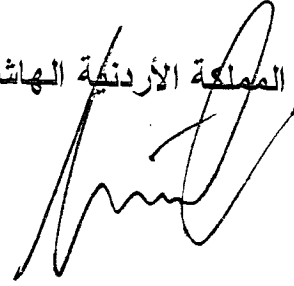 المملكة الأردنية الهاش